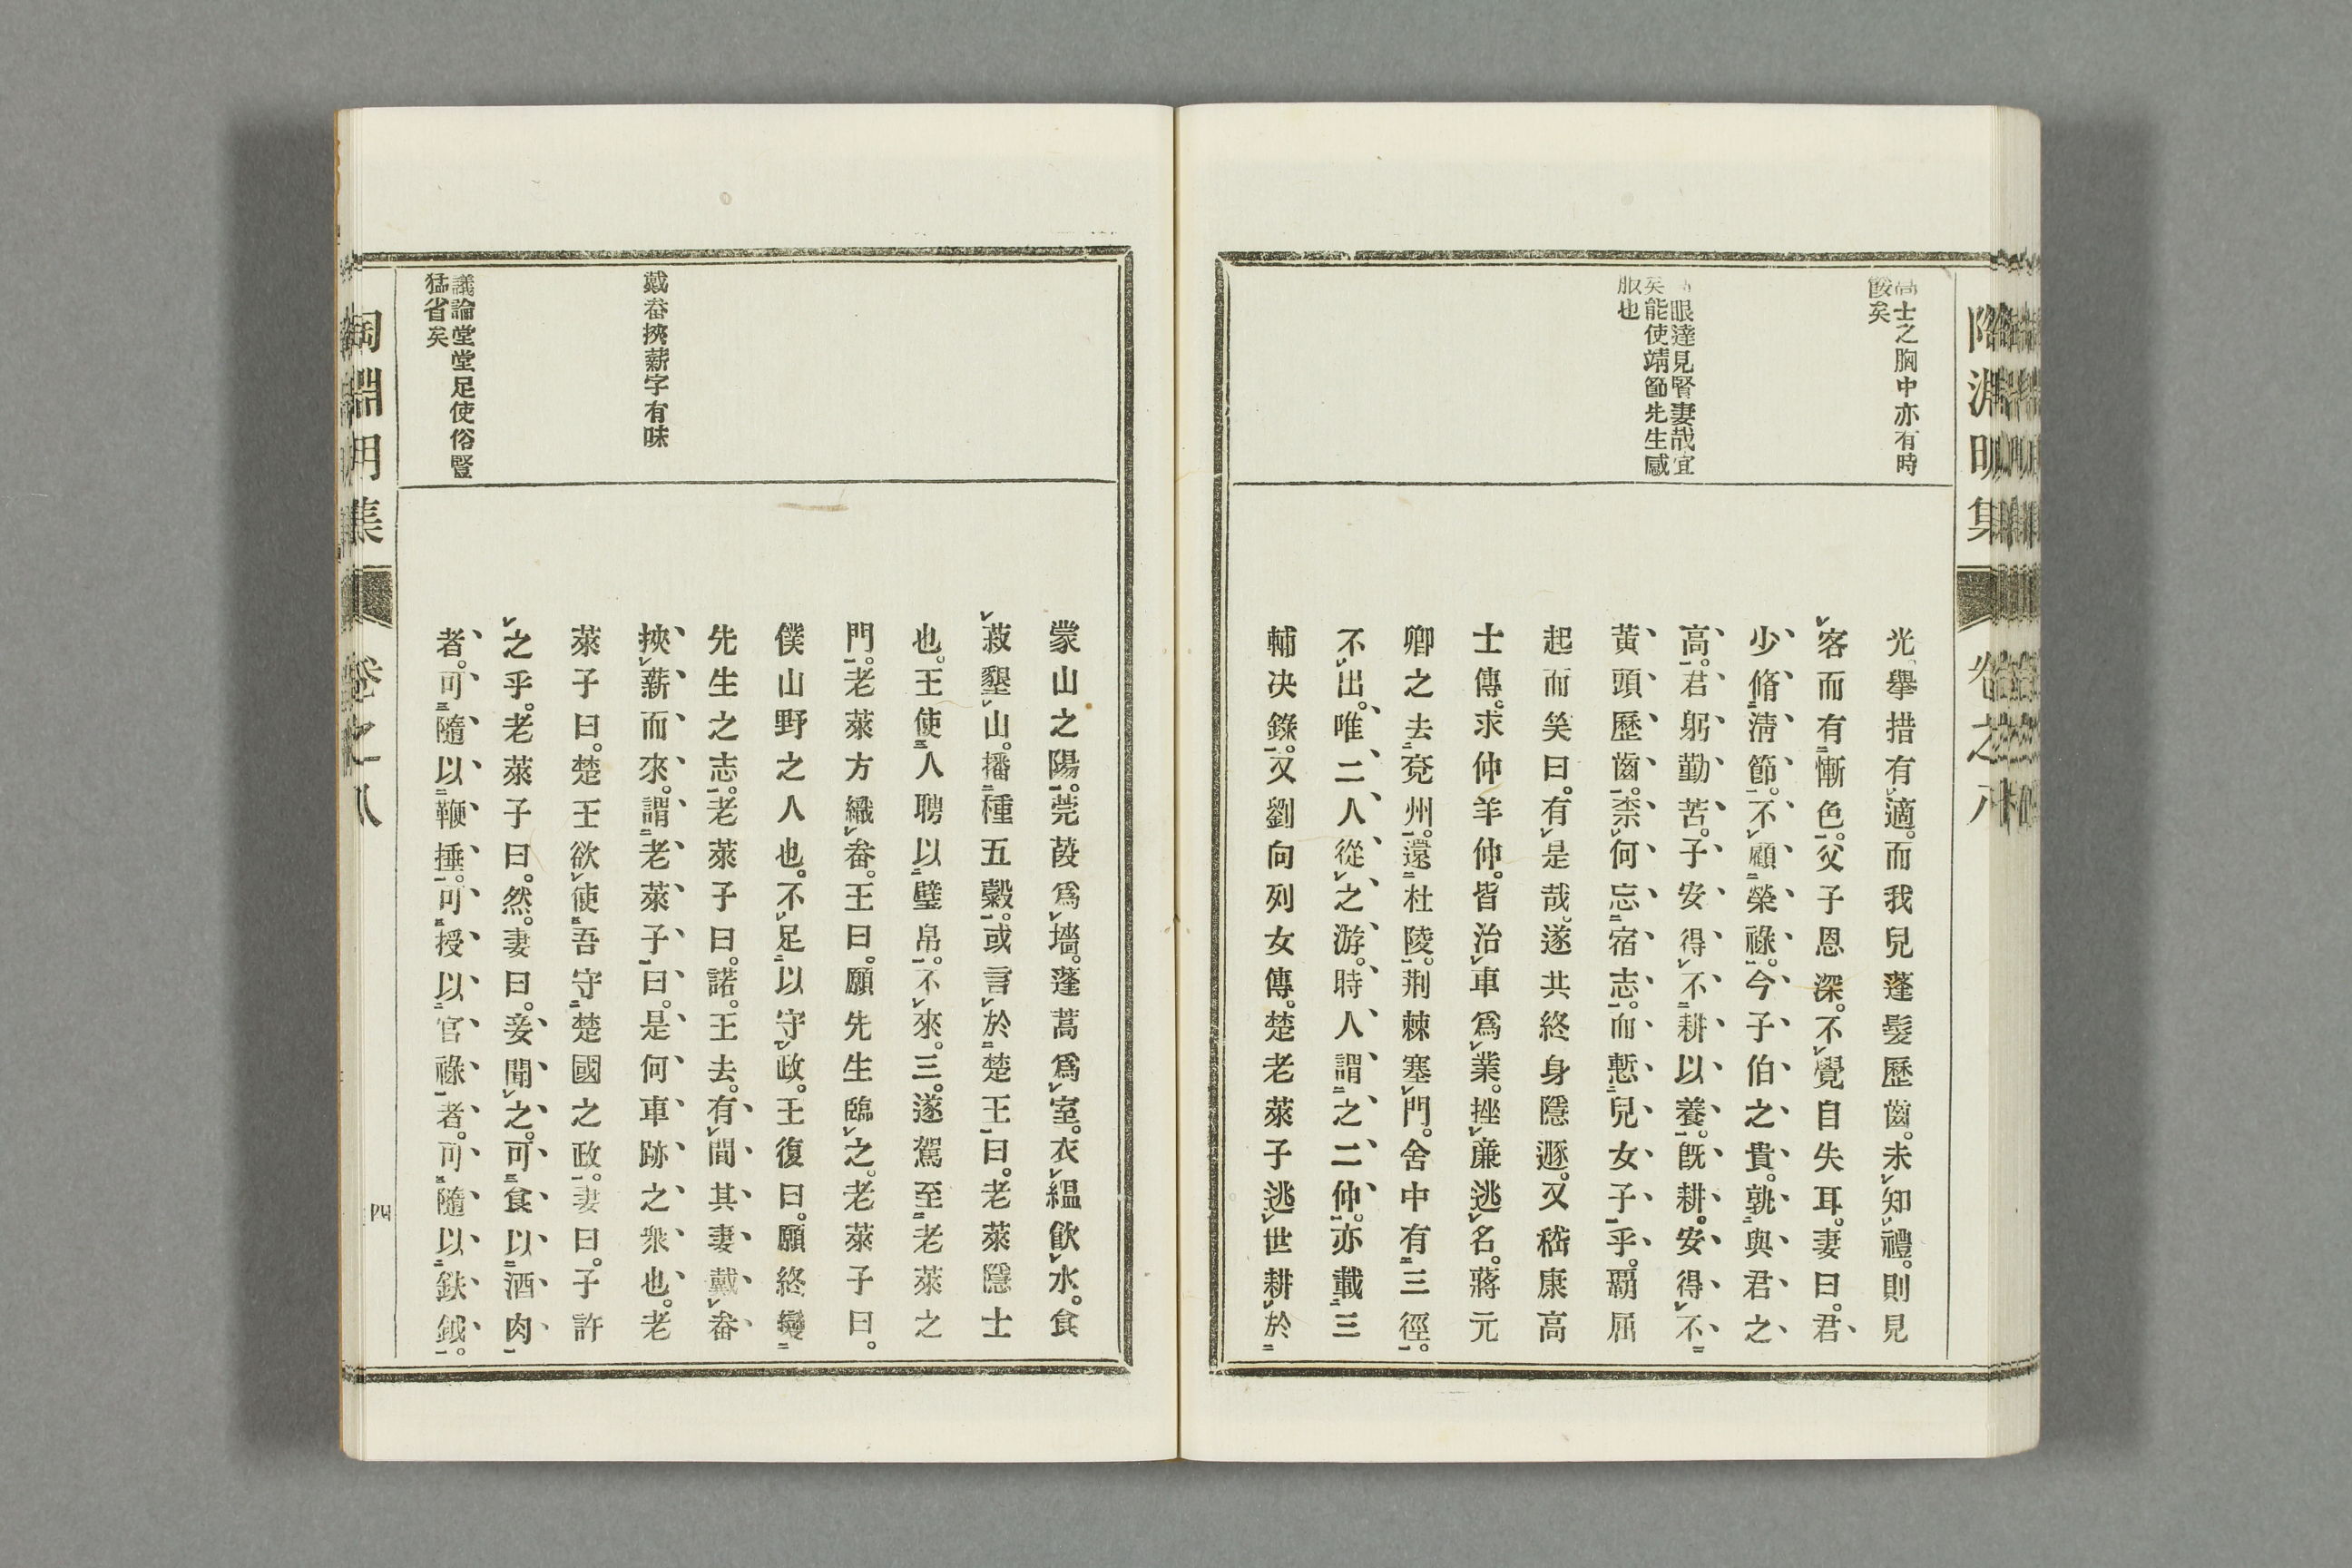 陶淵明集 卷之八
高士之胸中亦有時
餕矣
眼達見賢妻哉宜
矣能使靖節先生感
服也
光擧措有適。而我兒蓬髮歷齒。未知禮。則見
客而有慚色。父子恩深。不覺自失耳。妻曰。君
少脩淸節。不顧榮祿。今子伯之貴。孰與君之
高。君躬勤苦。子安得不耕以養。旣耕。安得不
黃頭歷齒。柰何忘宿志。而慙兒女子乎。覇屈
起而笑曰。有是哉。遂共終身隱遯。又嵇康高
士傳。求仲羊仲。皆治車爲業。挫廉逃名。蔣元
卿之去兗州。還杜陵。荆棘塞門。舍中有三徑。
不出。唯二人從之游。時人謂之二仲。亦載三
輔决錄。又劉向列女傳。楚老萊子逃世耕於
戴畚挾薪字有味
議論堂堂足使俗豎
猛省矣
蒙山之陽。莞葭爲墻。蓬蒿爲室。衣縕飮水。食
菽墾山。播種五穀。或言於楚王曰。老萊隱士
也。王使人聘以璧帛。不來。三。遂駕至老萊之
門。老萊方織畚。王曰。願先生臨之。老萊子曰。
僕山野之人也。不足以守政。王復曰。願終變
先生之志。老萊子曰。諾。王去。有間其妻戴畚
挾薪而來。謂老萊子曰。是何車跡之衆也。老
萊子曰。楚王欲使吾守楚國之政。妻曰。子許
之乎。老萊子曰。然。妻曰。妾聞之。可食以酒肉
者。可隨以鞭捶。可授以官祿者。可隨以鈇鉞。
陶淵明集 卷之八 四